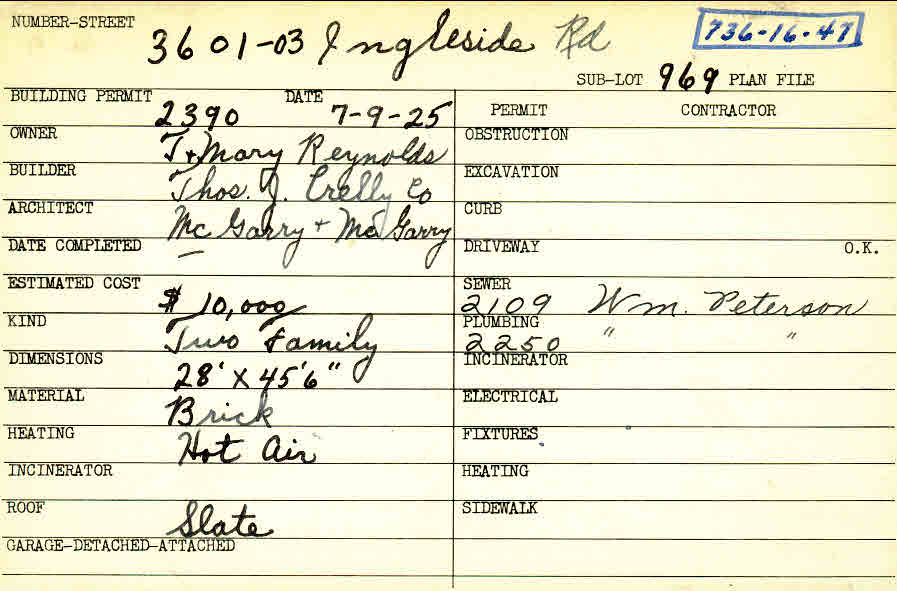 NUMBER-STREET 3601-03 Ingleside Rd 736-16-47
SUB-LOT 969 PLAN FILE
BUILDING PERMIT 2390 DATE 7-9-25
OWNER T + Mary Reynolds
BUILDER Thos. J. Crelly Co
ARCHITECT Mc Garry + Mc Garry
DATE COMPLETED —
ESTIMATED COST $10,000
KIND Two Family
DIMENSIONS 28' X 45'6"
MATERIAL Brick
HEATING Hot Air
INCINERATOR
ROOF Slate
GARAGE-DETACHED-ATTACHED
PERMIT CONTRACTOR
OBSTRUCTION
EXCAVATION
CURB
DRIVEWAY O.K.
SEWER 2109 Wm. Peterson
PLUMBING 2250 " "
INCINERATOR
ELECTRICAL
FIXTURES
HEATING
SIDEWALK